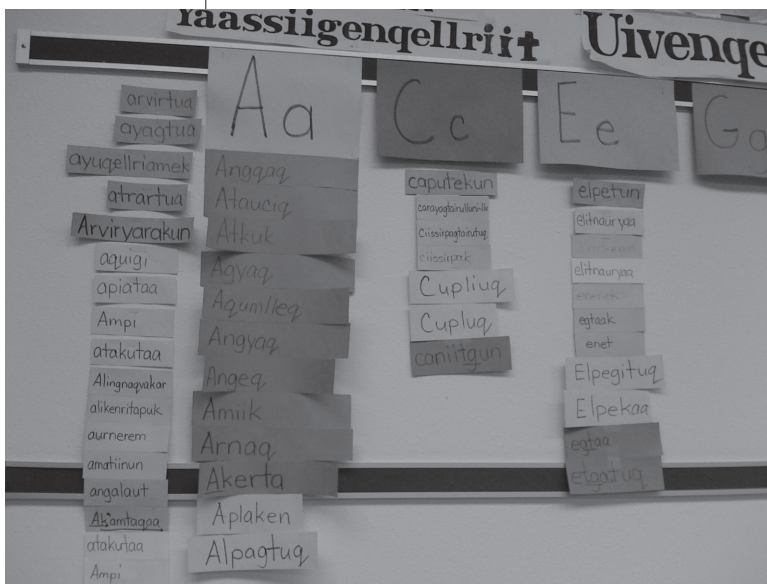 Yaassiigenqellriit
Uivenqe
arvirtua
ayagtua
ayuqellriamek
atrartua
Arviryarakun
aquigi
apiataa
Ampi
atakutaa
Alingnaqvakar
alikenritapuk
aurnerem
amatiinun
angalaut
atakutaa
Ampi
Aa
Angqaq
Atauciq
Atkuk
Agyaq
Aqumlleq
Angyaq
Angeq
Amiik
Arnaq
Akerta
Aplaken
Alpagtuq
Cc
caputekun
Ciissirpagtairutuq
ciissirpak
Cupliuq
Cupluq
caniitgun
Ee
elpetun
elitnauryaa
elitnauryaa
egtaak
enet
Elpegituq
Elpekaa
egtaa
etgatuq
Gg